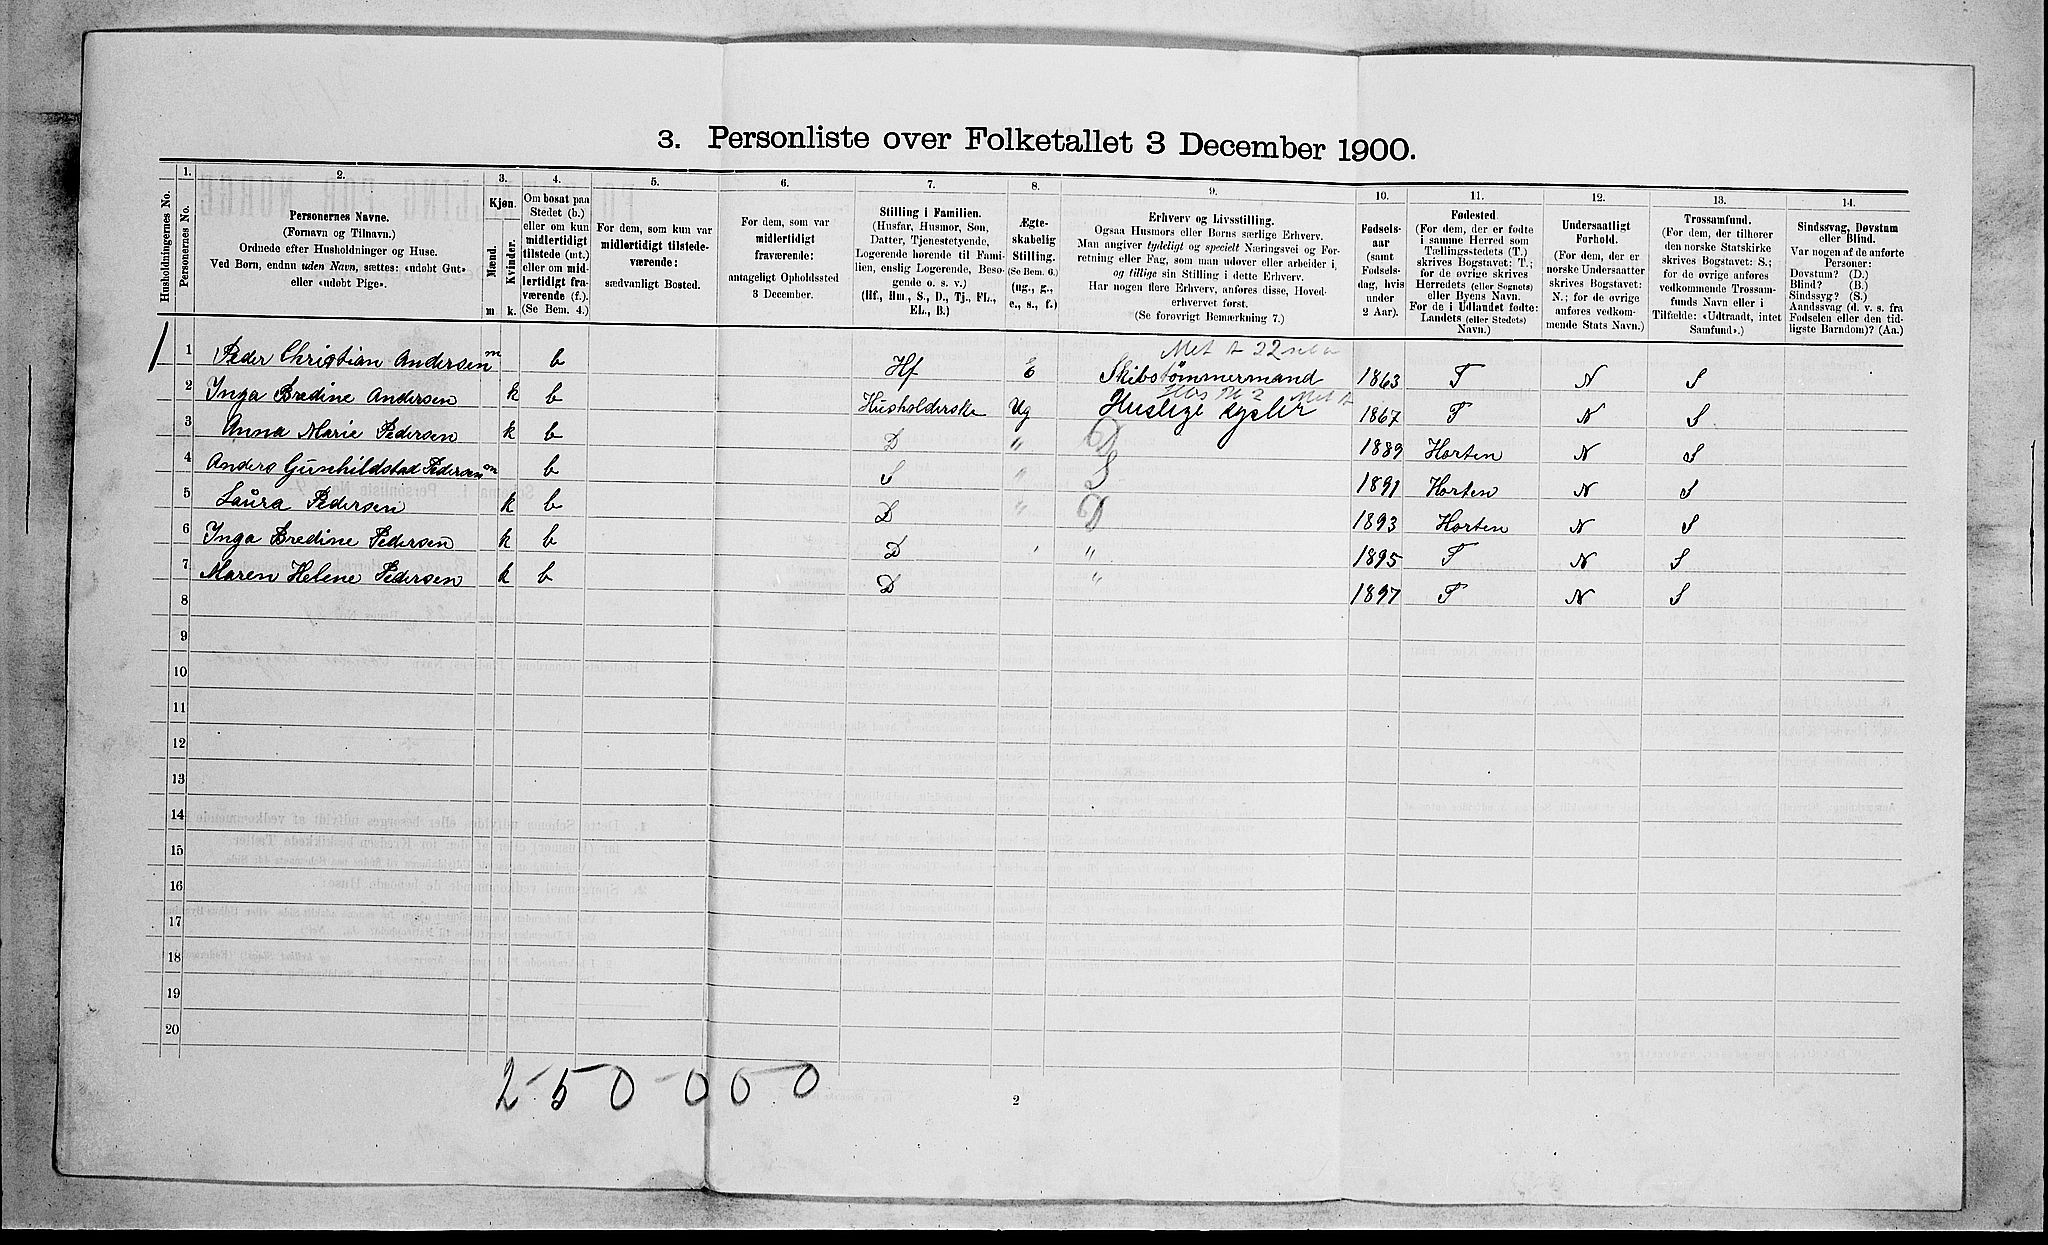 3. Personliste over Folketallet 3 December 1900.
Husholdningernes No.
1. Personernes No.
2. Personernes Navne. (Fornavn og Tilnavn.) Ordnede efter Husholdninger og Huse. Ved Børn, endnu uden Navn, sættes: «udøbt Gut» eller «udøbt Pige».
3. Kjøn. Mænd. m Kvinder. k.
4. Om bosat paa Stedet (b.) eller om kun midlertidigt tilstede (mt.) eller om midlertidigt fraværende (f.). (Se Bem. 4.)
5. For dem, som kun var midlertidigt tilstedeværende: sædvanligt Bosted.
6. For dem, som var midlertidigt fraværende: antageligt Opholdssted 3 December.
7. Stilling i Familien. (Husfar, Husmor, Søn, Datter, Tjenestetyende, Logerende hørende til Familien, enslig Logerende, Besøgende o. s. v.) (Hf., Hm., S., D., Tj., FL., EL., B.)
8. Ægteskabelig Stilling. (Se Bem. 6.) (ug., g., e., s., f.)
9. Erhverv og Livsstilling. Ogsaa Husmors eller Børns særlige Erhverv. Man angiver tydeligt og specielt Næringsvei og Forretning eller Fag, som man udøver eller arbeider i, og tillige sin Stilling i dette Erhverv. Har nogen flere Erhverv, anføres disse, Hovederhvervet først. (Se forøvrigt Bemærkning 7.)
10. Fødselsaar (samt Fødselsdag, hvis under 2 Aar).
11. Fødested. (For dem, der er fødte i samme Herred som Tællingsstedets (T.) skrives Bogstavet: T.; for de øvrige skrives Herredets (eller Sognets) eller Byens Navn. For de i Udlandet fødte: Landets (eller Stedets) Navn.)
12. Undersaatligt Forhold. (For dem, der er norske Undersaatter skrives Bogstavet: N.; for de øvrige anføres vedkommende Stats Navn.)
13. Trossamfund. (For dem, der tilhører den norske Statskirke skrives Bogstavet: S.; for de øvrige anføres vedkommende Trossamfunds Navn eller i Tilfælde: «Udtraadt, intet Samfund».)
14. Sindssvag, Døvstum eller Blind. Var nogen af de anførte Personer: Døvstum? (D.) Blind? (B.) Sindssyg? (S.) Aandssvag (d. v. s. fra Fødselen eller den tidligste Barndom)? (Aa.)
1 1 Peder Christian Andersen m b Hf E Skibstømmermand 1863 T N S
2 Inga Bredine Andersen k b Husholderske Ug Huslige sysler 1867 T N S
3 Anna Marie Pedersen k b D " D 1889 Horten N S
4 Anders Gunhildstad Pedersen m b S " S 1891 Horten N S
5 Laura Pedersen k b D " D 1893 Horten N S
6 Inga Bredine Pedersen k b D " 1895 T N S
7 Maren Helene Pedersen k b D " 1897 T N S
8
9
10
11
12
13
14
15
16
17
18
19
20
2-50-000
2